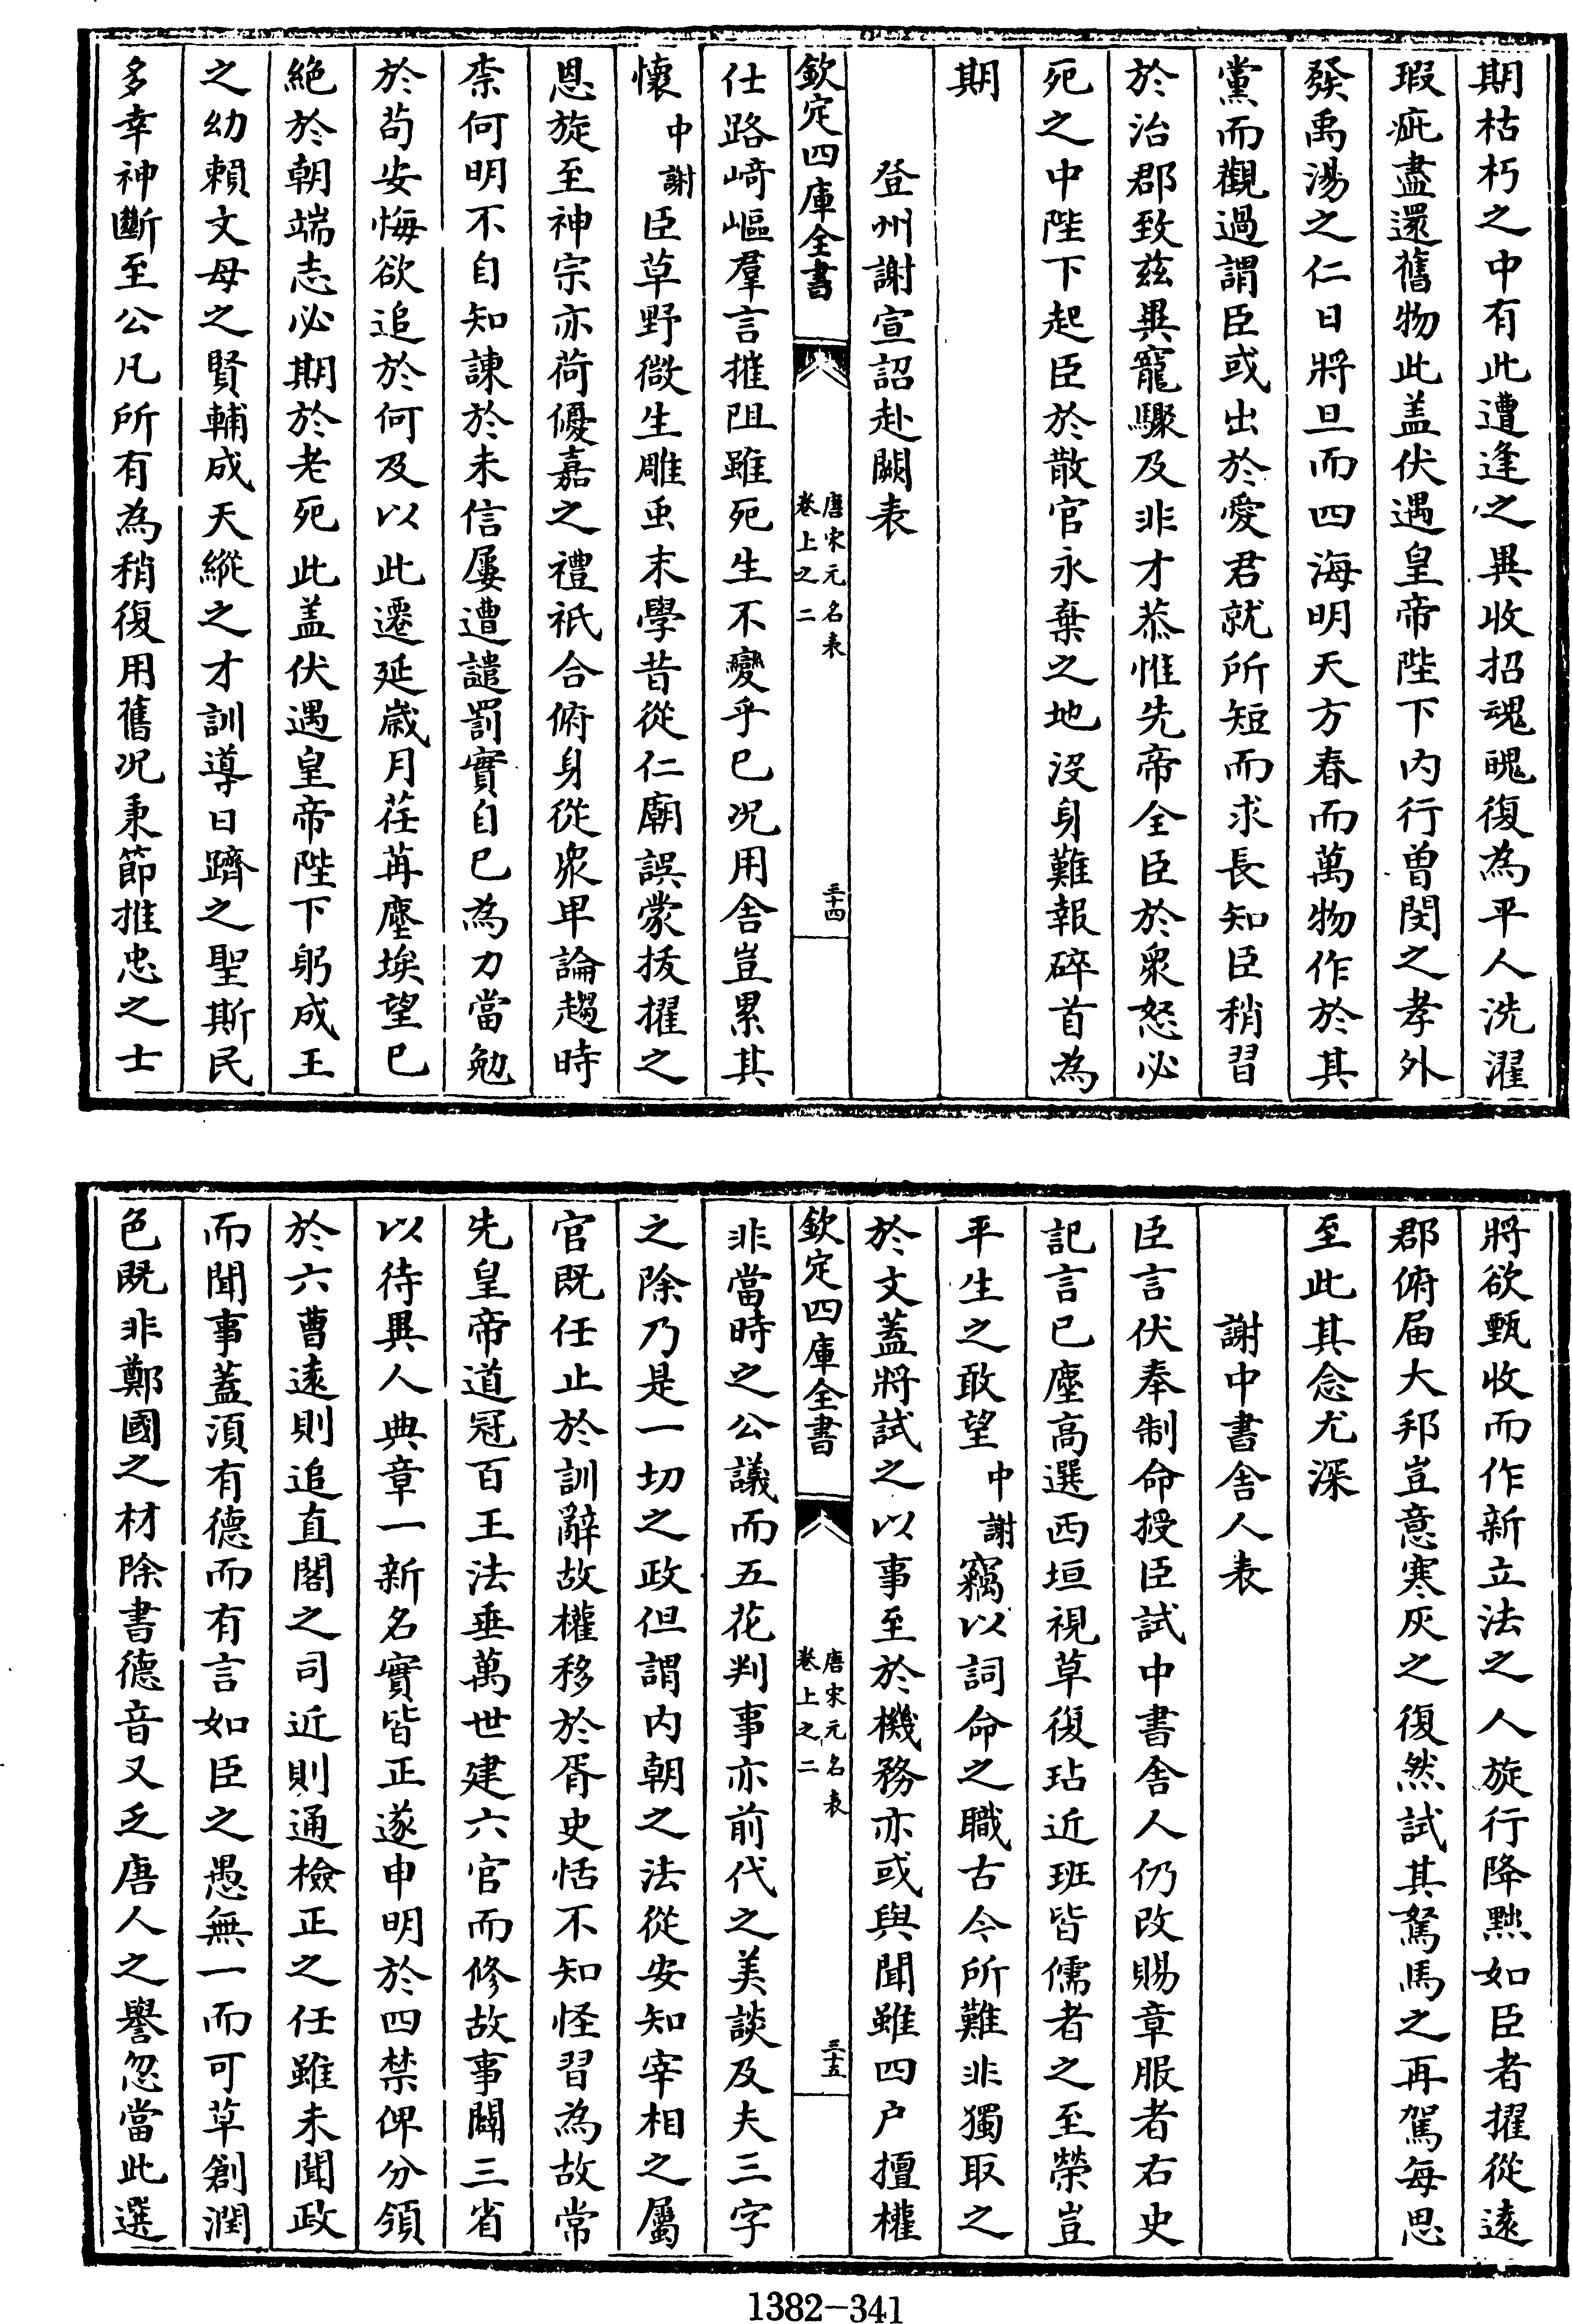 期枯朽之中有此遭逢之異收招魂魄復為平人洗濯
瑕疵盡還舊物此盖伏遇皇帝陛下内行曾閔之孝外
發禹湯之仁日將旦而四海明天方春而萬物作於其
黨而觀過謂臣或出於愛君就所短而求長知臣稍習
於治郡致兹異寵驟及非才恭惟先帝全臣於衆怒必
死之中陛下起臣於散官永棄之地沒身難報碎首為
期
登州謝宣詔赴闕表
欽定四庫全書
唐宋元名表
卷上之二
三十四
仕路﨑嶇羣言摧阻雖死生不變乎已况用舍豈累其
懐中謝臣草野微生雕虫末學昔從仁廟誤蒙拔擢之
恩旋至神宗亦荷優嘉之禮祇合俯身從衆卑論趨時
柰何明不自知諫於未信屢遭譴罰實自已為力當勉
於茍安悔欲追於何及以此遷延嵗月荏苒塵埃望已
絶於朝端志必期於老死此盖伏遇皇帝陛下躬成王
之幼賴文母之賢輔成天縱之才訓導日躋之聖斯民
多幸神斷至公凡所有為稍復用舊况秉節推忠之士
將欲甄收而作新立法之人旋行降黜如臣者擢從逺
郡俯届大邦豈意寒灰之復然試其駑馬之再駕每思
至此其念尤深
謝中書舍人表
臣言伏奉制命授臣試中書舍人仍改賜章服者右史
記言已塵高選西垣視草復玷近班皆儒者之至榮豈
平生之敢望中謝竊以詞命之職古今所難非獨取之
於文蓋將試之以事至於機務亦或與聞雖四户擅權
欽定四庫全書
唐宋元名表
卷上之二
三十五
非當時之公議而五花判事亦前代之美談及夫三字
之除乃是一切之政但謂内朝之法從安知宰相之屬
官既任止於訓辭故權移於胥史恬不知怪習為故常
先皇帝道冠百王法垂萬世建六官而修故事闢三省
以待異人典章一新名實皆正遂申明於四禁俾分領
於六曹逺則追直閣之司近則通檢正之任雖未聞政
而聞事蓋湏有德而有言如臣之愚無一而可草創潤
色既非鄭國之材除書德音又乏唐人之譽忽當此選
1382-341